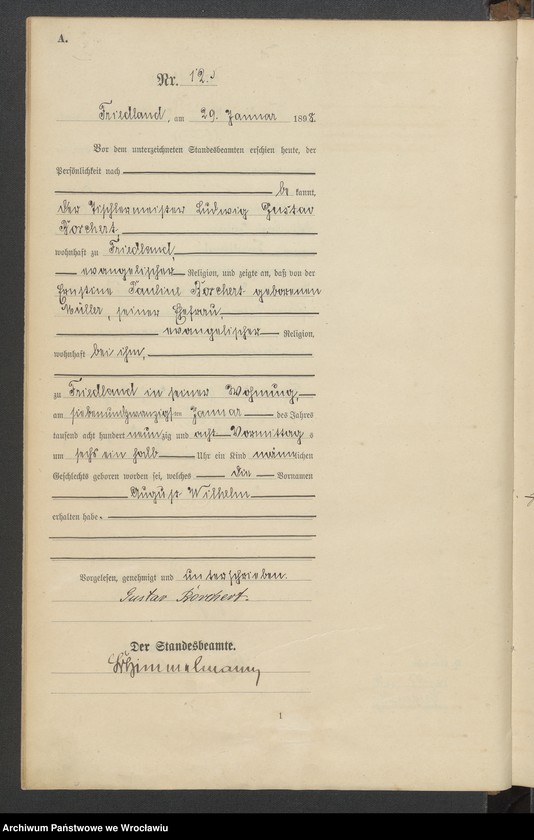 A.
Nr. 12.
Friedland, am 29. Januar 1898.
Vor dem unterzeichneten Standesbeamten erschien heute, der
Persönlichkeit nach
be kannt,
der Tischlermeister Ludwig Gustav
Borchert,
wohnhaft zu Friedland,
evangelischer Religion, und zeigte an, daß von der
Ernstine Pauline Borchert geborenen
Müller, seiner Ehefrau,
evangelischer Religion,
wohnhaft bei ihm,
zu Friedland in seiner Wohnung,
am siebenundzwanzigsten Januar des Jahres
tausend acht hundert neunzig und acht Vormittags
um sechs ein halb Uhr ein Kind männlichen
Geschlechts geboren worden sei, welches die Vornamen
August Wilhelm
erhalten habe.
Vorgelesen, genehmigt und unterschrieben.
Gustav Borchert.
Der Standesbeamte.
Himmelmann
1
Archiwum Państwowe we Wrocławiu